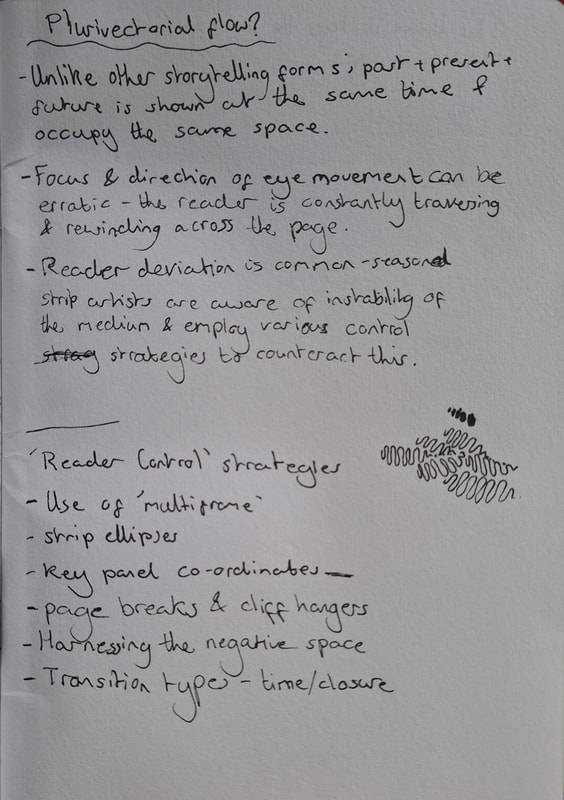 Plurivectorial flow?
- Unlike other storytelling forms; past + present +
future is shown at the same time &
occupy the same space.
- Focus & direction of eye movement can be
erratic - the reader is constantly traversing
& rewinding across the page.
- Reader deviation is common - seasoned
strip artists are aware of instability of
the medium & employ various control
strategies to counteract this.
'Reader Control' strategies
- Use of 'multiframe'
- strip ellipses
- key panel co-ordinates
- page breaks & cliff hangers
- Harnessing the negative space
- Transition type - time/closure